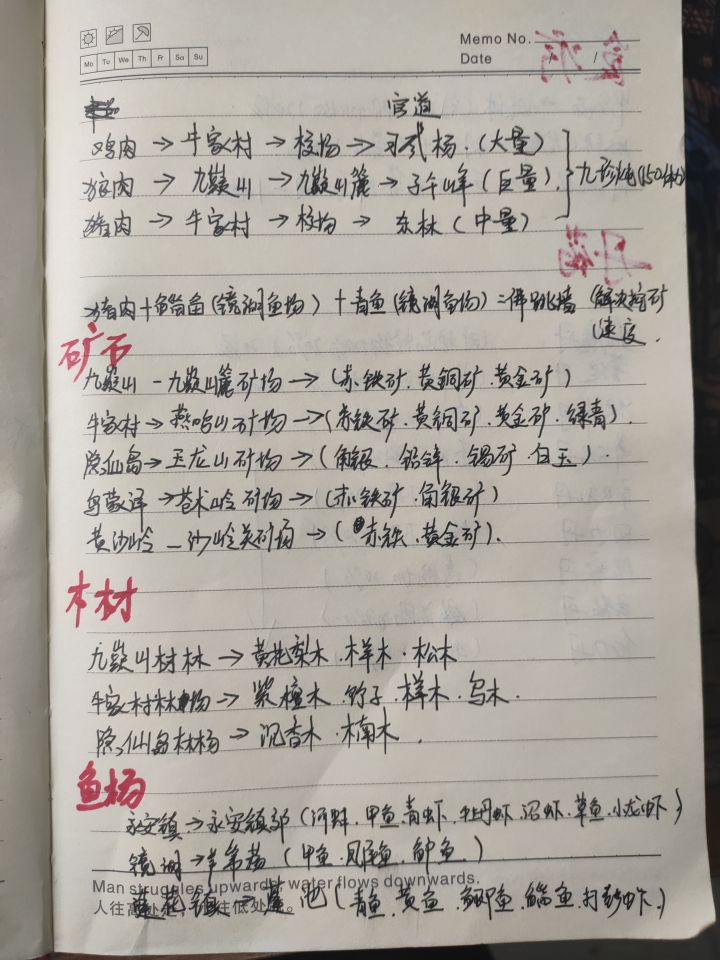 Memo No.
Mo Tu We Th Fr Sa Su
Date / /
官道
鸡肉 → 牛家村 → 校场 → 习武场.(大量)
狼肉 → 九嶷山 → 九嶷山麓 → 子午峰(巨量).
九珍炖(150体)
猪肉 → 牛家村 → 校场 → 东林(中量)
猪肉+鲳鱼(镜湖鱼场)+青鱼(镜湖鱼场)=佛跳墙(解决挖矿
速度.
矿石
九嶷山-九嶷山麓矿场→(赤铁矿.黄铜矿.黄金矿)
牛家村→燕鸣山矿场→(赤铁矿.黄铜矿.黄金矿.绿青).
隐仙岛→玉龙山矿场→(角银.铅锌.锡矿.白玉).
乌蒙泽→苍术岭矿场→(赤铁矿.角银矿)
黄沙岭-沙岭关矿场→(赤铁.黄金矿).
木材
九嶷山材林→黄花梨木.样木.松木
牛家村林场→紫檀木.竹子.样木.乌木.
隐仙岛林场→沉香木.楠木.
鱼场
永安镇→永安镇郊(河蚌.甲鱼.青虾.牡丹虾.沼虾.草鱼.小龙虾)
镜湖→芦苇荡(甲鱼.凤尾鱼.鲈鱼.)
Man struggles upwards, water flows downwards.
莲花镇→莲池(青鱼.黄鱼.鲫鱼.鲳鱼.对虾.)
人往高处走,水往低处流。